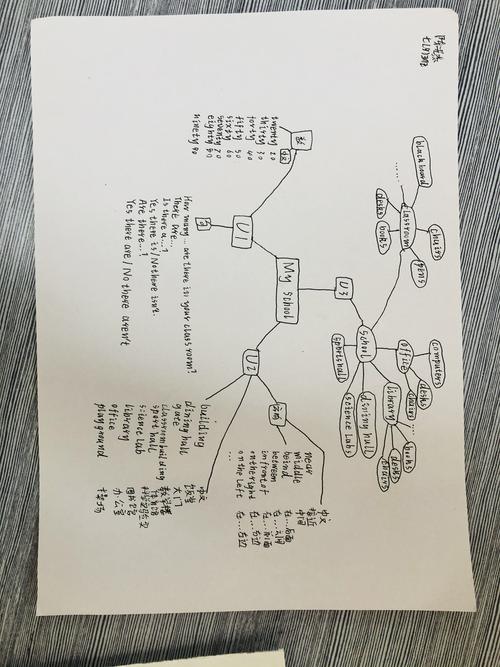 My school
U1
数
twenty 20
thirty 30
forty 40
fifty 50
sixty 60
seventy 70
eighty 80
ninety 90
句
How many... are there in your classroom?
There are...
Is there a...?
Yes there is/No there isn't
Are there...?
Yes there are/No there aren't
U2
building
dining hall
gate
classroom building
sports hall
science lab
library
office
playground
中文
饭堂
大门
教学楼
体育馆
科学实验室
图书馆
办公室
操场
near
middle
beind
between
in front of
on the right
on the left
...
中文
接近
中间
在...后面
在...之间
在...前面
在...右边
在...左边
U3
classroom
blackboard
......
desks
books
chairs
pens
school
office
computers
desks
chairs
......
library
books
desks
chairs
dining hall
science Labs
sports hall